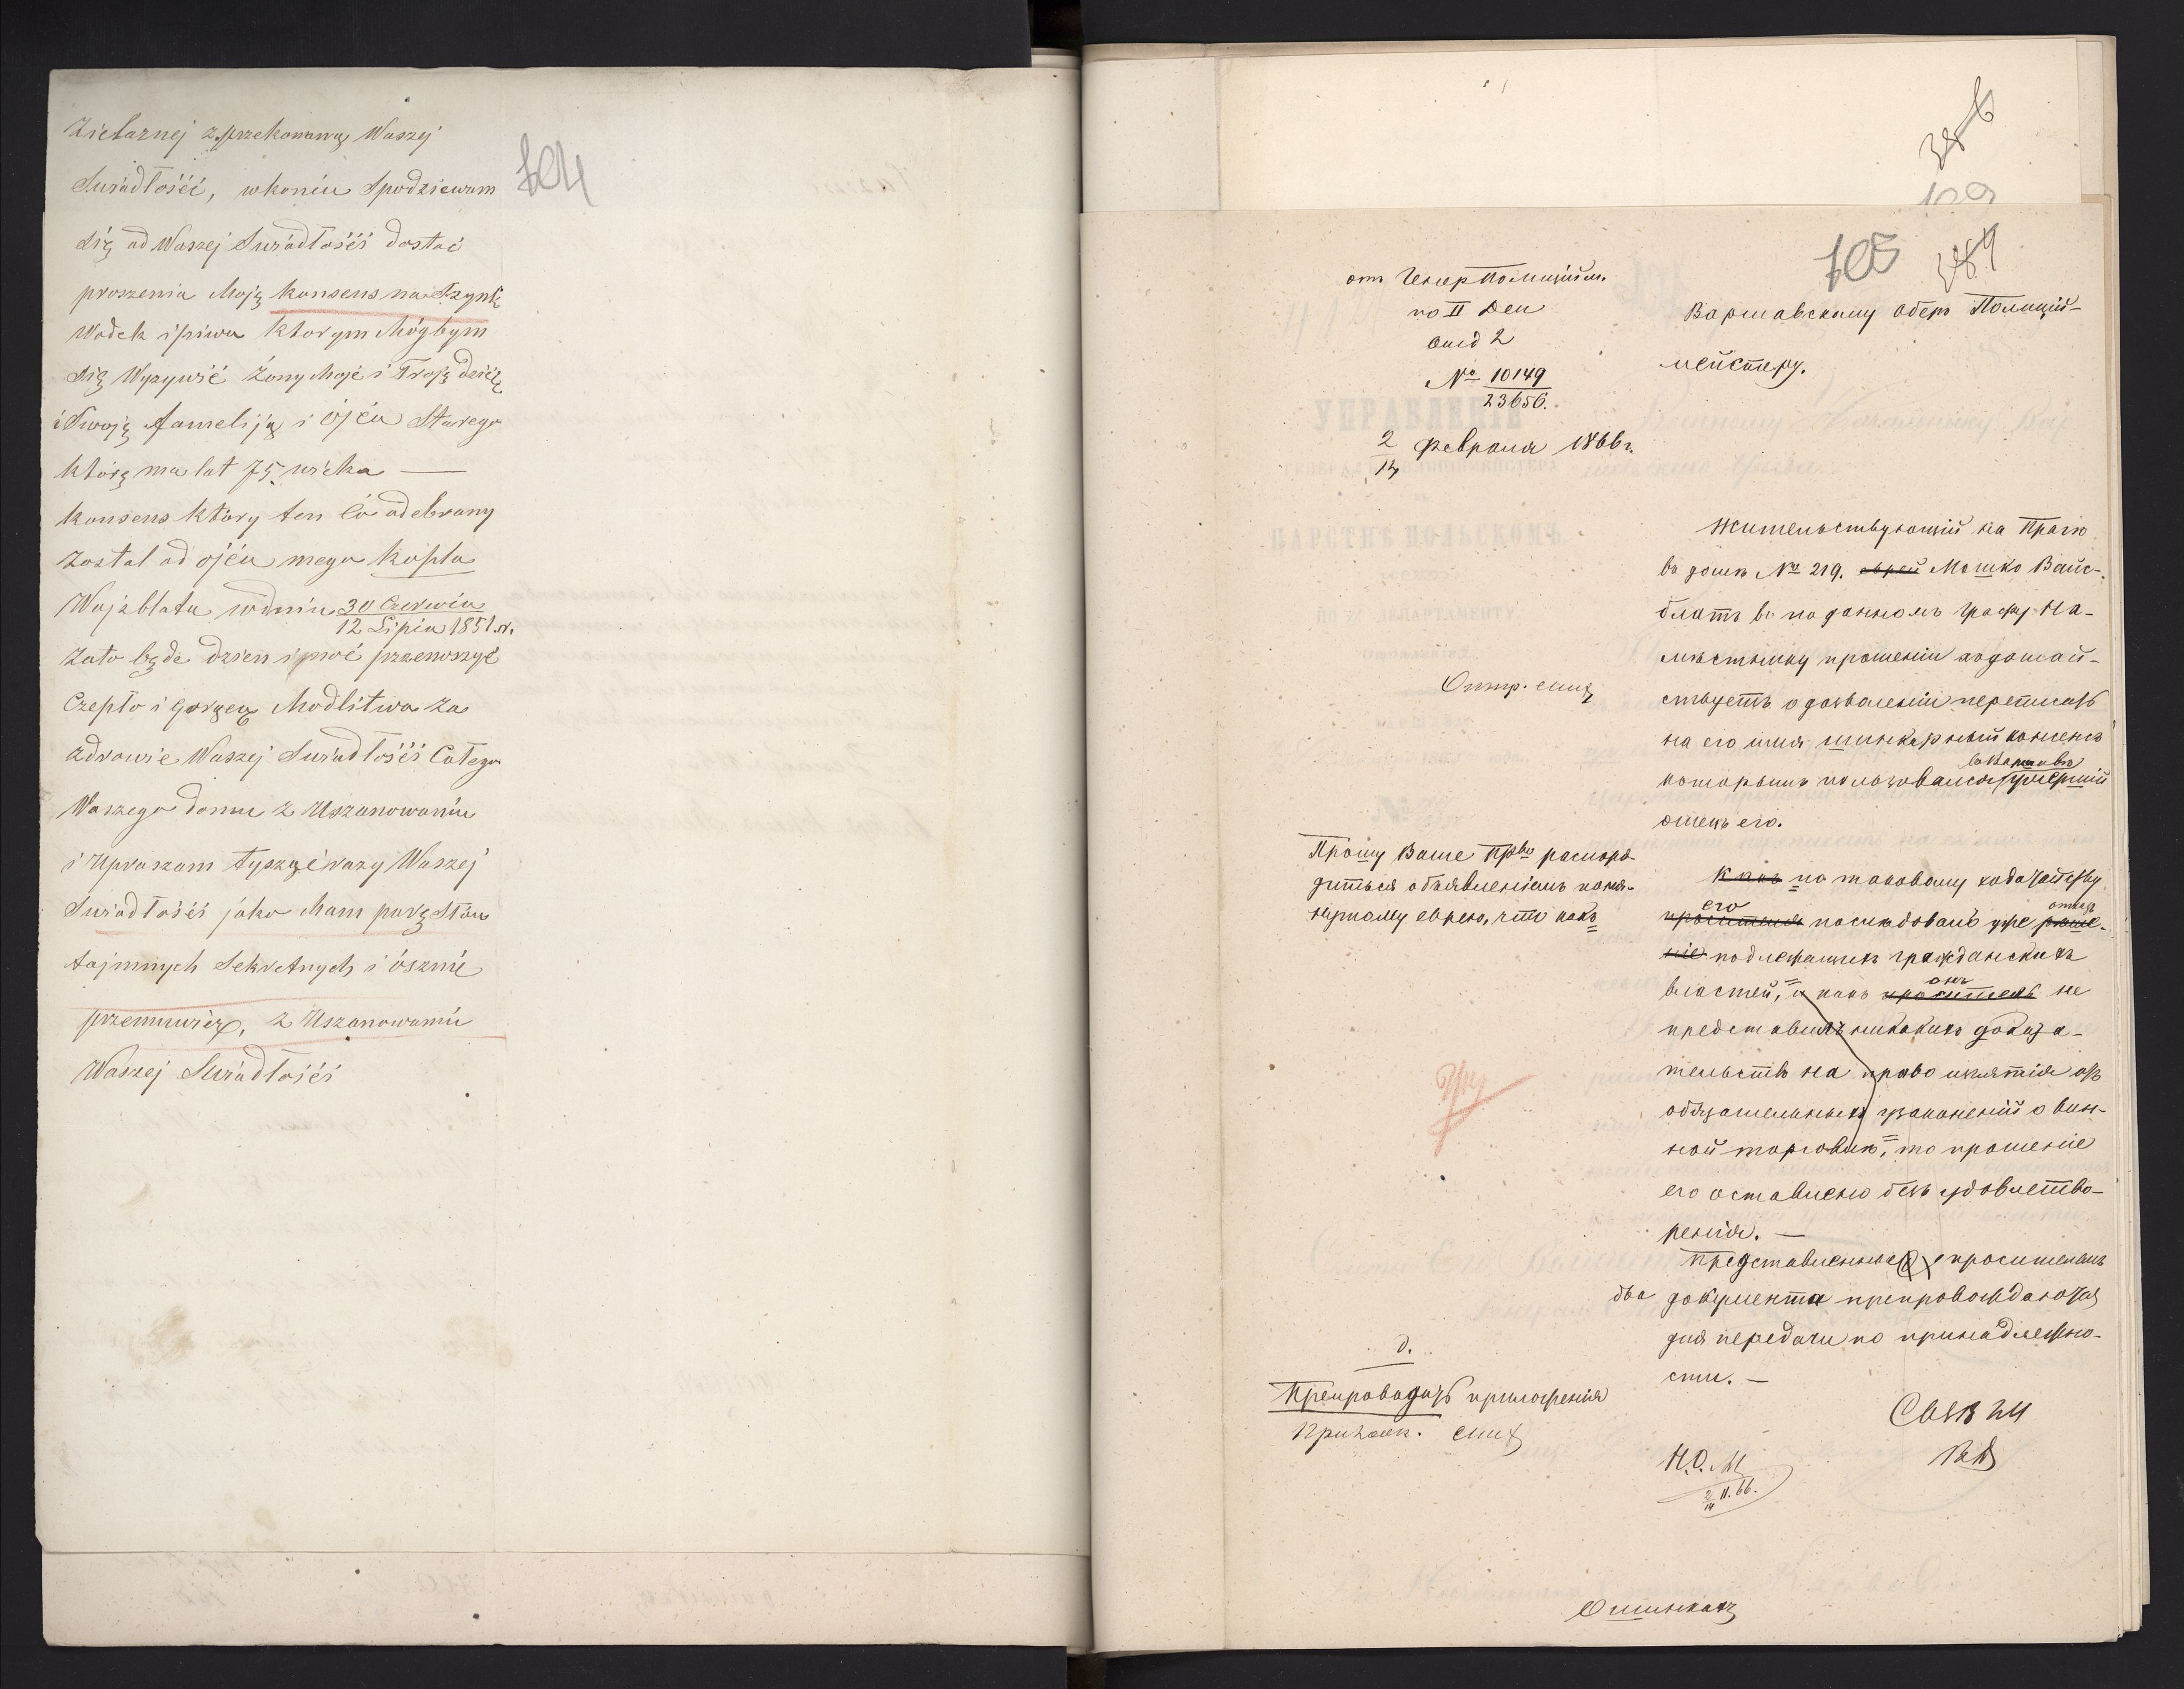 Zielaznej z przekonaną Waszej
Swiadłość, wkoniu Spodziewam
się od Waszej Swiadłośći dostać
proszenia Moję konsens na Szynk
Wodek i piwa ktorym Mógbym
się Wyzywić Żony Moję i Troję dzieć
i Swoję fameliję i Ojća Starego
którę ma lat 75 wieka —
konsens który ten có odebrany
został od ojća mego kopla
Wajzblata wdniu 30 Czerwia
12 Lipia 1851 r.
zato będe dzien i noć przenoszyć
Czepło i goręcą Modlitwa za
zdrowie Waszej Swiadłośći Całego
Waszego domu z Uszanowaniu
i Upraszam tysząć razy Waszej
Swiadłośći jako Mam parę Słów
tajmnych Sekretnych i ósznie
przemuwię, z Uszanowaniu
Waszej Swiadłośći
104
105
отъ Генер Полиційм.
по II Деп
Отд 2
№ 10149
23656.
2/14 Февраля 1866 г.
Варшавскому Оберъ Полицій-
мейстеру.
Жительствующій на Праге
въ доме № 219. еврей Мошко Вайс-
блатъ въ поданномъ Графу На-
местнику прошеніи ходатай-
ствуетъ о дозволеніи переписать
на его имя шинкарный консенсъ
въ Варшаве
которымъ пользовался умершій
отецъ его.
Прошу Ваше Прво распоря-
диться объявленіемъ помя-
нутому еврею, что какъ
Какъ по таковому ходатайству
его
отказъ
просителя последовалъ уже реше-
ніе подлежащихъ гражданскихъ
онъ
властей, и какъ проситель не
представилъ никакихъ доказа-
тельствъ на право изъятія отъ
обязательныхъ узаконеній о вин-
ной торговле, то прошеніе
его оставлено безъ удовлетво-
ренія. —
Представленные просителемъ
два документа препровождаются
для передачи по принадлежно-
сти. —
Препроводить приложенія
Н.О.М
2/14 II. 66.
О шинкахъ